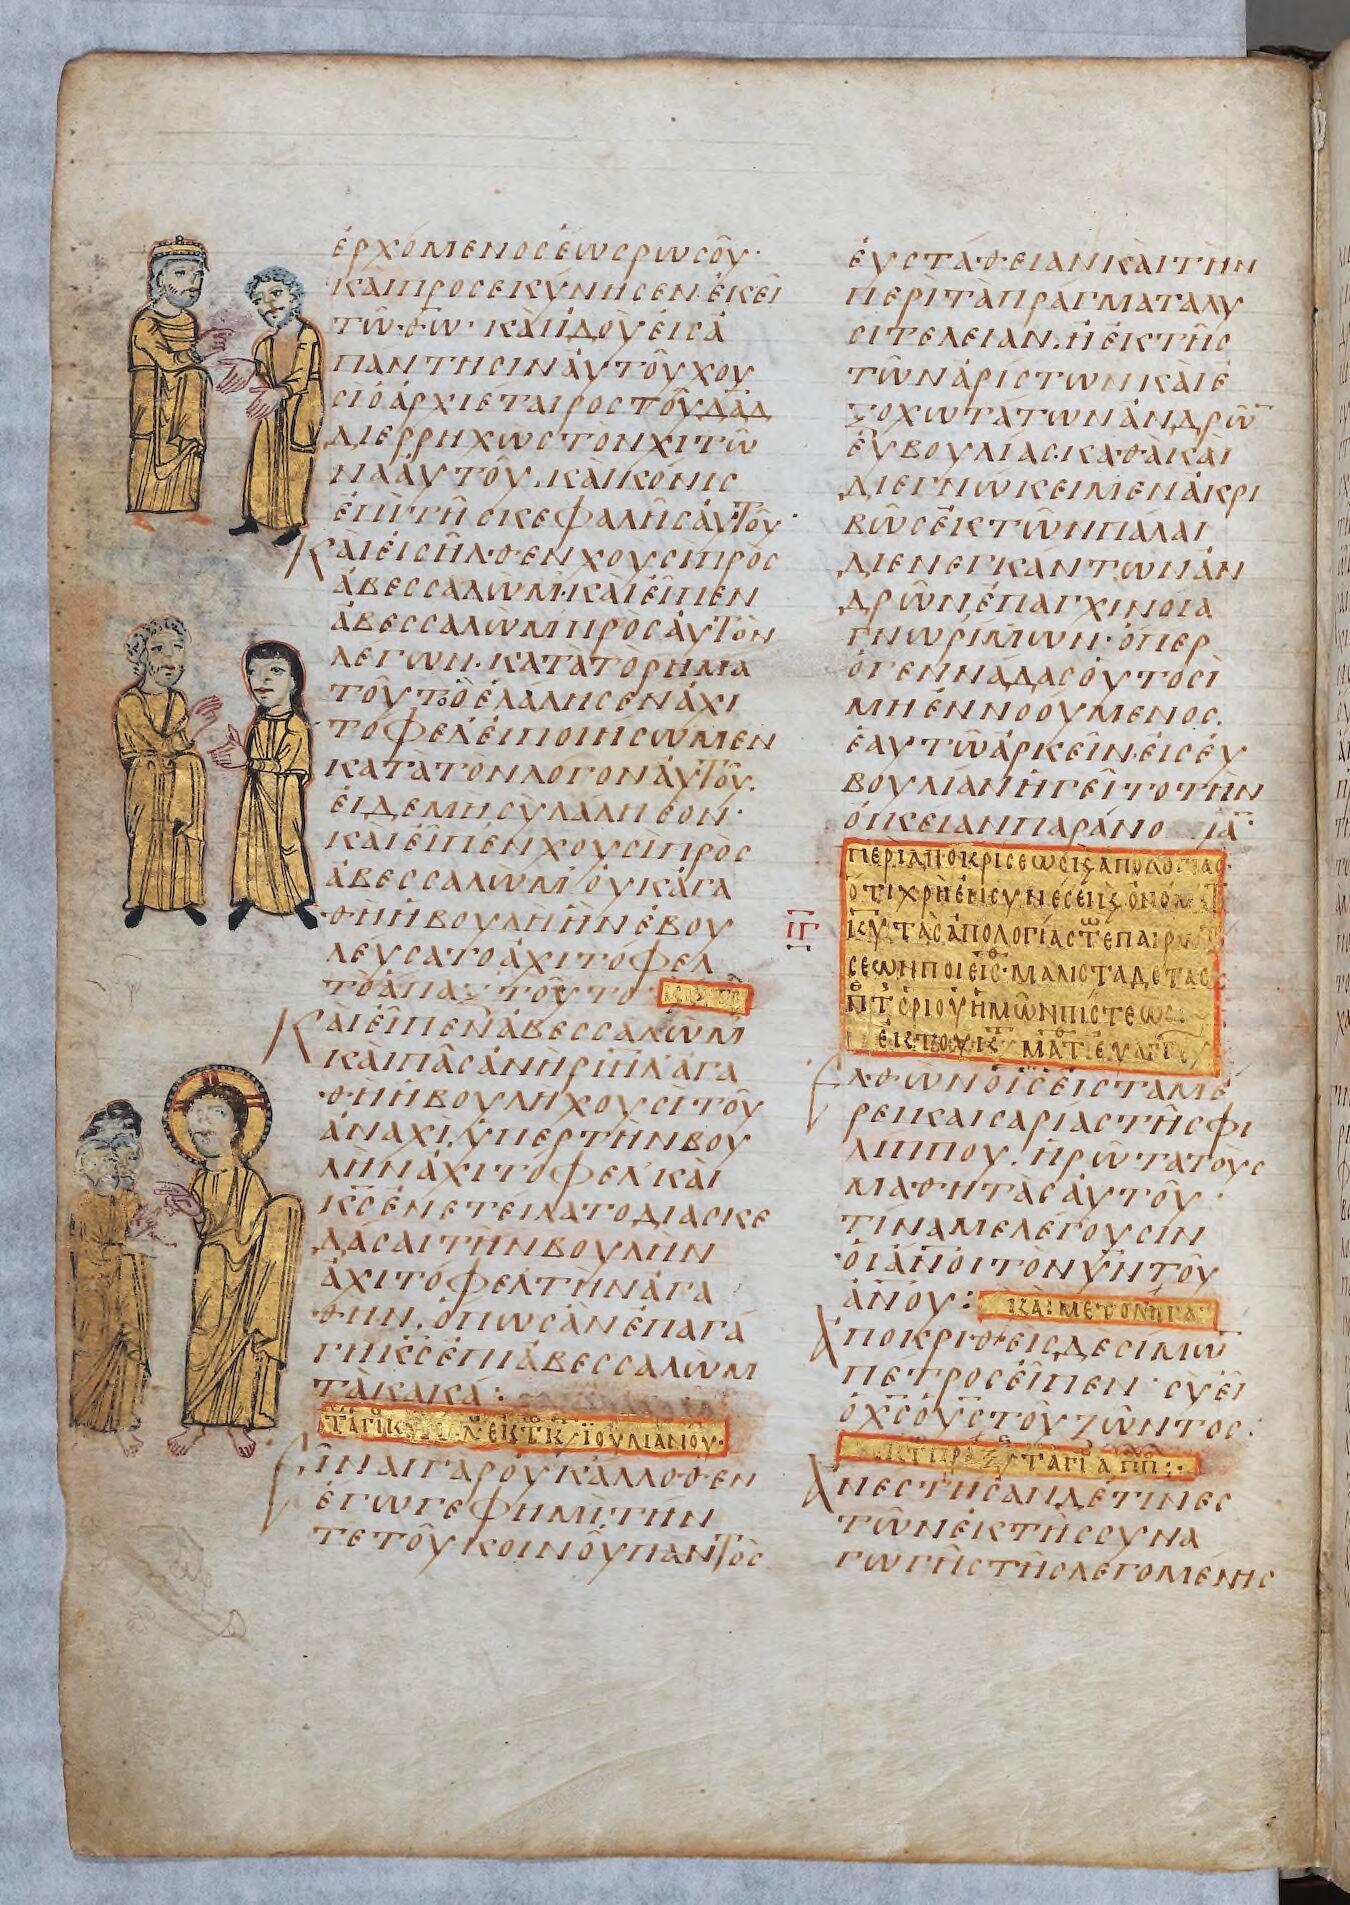 ἐρχόμενος ἕως ρωσοῦ·
καὶ προσεκύνησεν ἐκεῖ
τῶ θω· καὶ ἰδοὺ εἰς ἀ
πάντησιν ἀυτοῦ χου
σὶ ὁ ἀρχιέταιρος τοῦ δαδ
διερρηχὼς τὸν χιτῶ
να ἀυτοῦ. καὶ κόνις
ἐπὶ τῆς κεφαλῆς ἀυτοῦ·
Καὶ εἰσῆλθεν χουσὶ πρὸς
ἀβεσσαλώμ· καὶ εἶπεν
ἀβεσσαλὼμ πρὸς ἀυτὸν
λέγων· κατὰ τὸ ρῆμα
τοῦτο ὃ ἐλάλησεν ἀχι
τόφελ· εἰ ποιήσωμεν
κατὰ τὸν λόγον ἀυτοῦ.
εἰ δὲ μὴ σὺ λάλησον·
καὶ εἶπεν χουσὶ πρὸς
ἀβεσσαλώμ· οὐκ ἀγα
θὴ ἡ βουλὴ ἣν ἐβου
λεύσατο ἀχιτόφελ
τὸ ἅπαξ τοῦτο·
Καὶ εἶπεν ἀβεσσαλὼμ
καὶ πᾶς ἀνὴρ ιηλ ἀγα
θὴ ἡ βουλὴ χουσὶ τοῦ
ἀναχι, ὑπὲρ τὴν βου
λὴν ἀχιτόφελ· καὶ
κς ἐνετείλατο διασκε
δάσαι τὴν βουλὴν
ἀχιτόφελ τὴν ἀγα
θήν. ὅπως ἂν ἐπαγά
γη κς ἐπὶ ἀβεσσαλὼμ
τὰ κακά:
ἰουλιανοῦ·
Εἶναι γὰρ οὐκ ἄλλοθεν
ἔγωγε φημὶ τήν
τε τοῦ κοινοῦ παντὸς
ἐυστάθειαν καὶ τὴν
περὶ τὰ πράγματα λυ
σιτέλειαν. ἢ ἐκ τῆς
τῶν ἀρίστων καὶ ἐ
ξοχωτάτων ἀνδρῶ
ἐυβουλίας. καθὰ καὶ
διεγνώκειμεν ἀκρι
βῶς ἐκ τῶν πάλαι
διενεγκάντων ἀν
δρῶν ἐπ' ἀγχινοία
γνωρίμων· ὅπερ
ὁ γεννάδας οὑτοσὶ
μὴ ἐννοούμενος.
ἑαυτῶ ἀρκεῖν εἰς ἐυ
βουλίαν ἡγεῖτο τὴν
οἰκείαν παράνοιαν·
περὶ ἀποκρίσεως ἀπολογίας·
ὅτι χρὴ ἐν συνέσει
ιγ
τὰς ἀπολογίας
ποιεῖς· μάλιστα δὲ τὰς
ἡμῶν πίστεως
Ἐλθὼν ὁ ις εἰς τὰ μέ
ρει καισαρίας τῆς φι
λίππου. ἠρώτα τοὺς
μαθητὰς ἀυτοῦ·
τίνα με λέγουσιν
οἱ ανοι τὸν υν τοῦ
ανου:
καὶ μετ ολίγα·
Ἀποκριθεὶς δὲ σίμω
πέτρος εἶπεν· σὺ εἶ
ὁ χς ὁ υς τοῦ ζῶντος·
Ἀνέστησαν δέ τινες
τῶν ἐκ τῆς συνα
γωγῆς τῆς λεγομένης